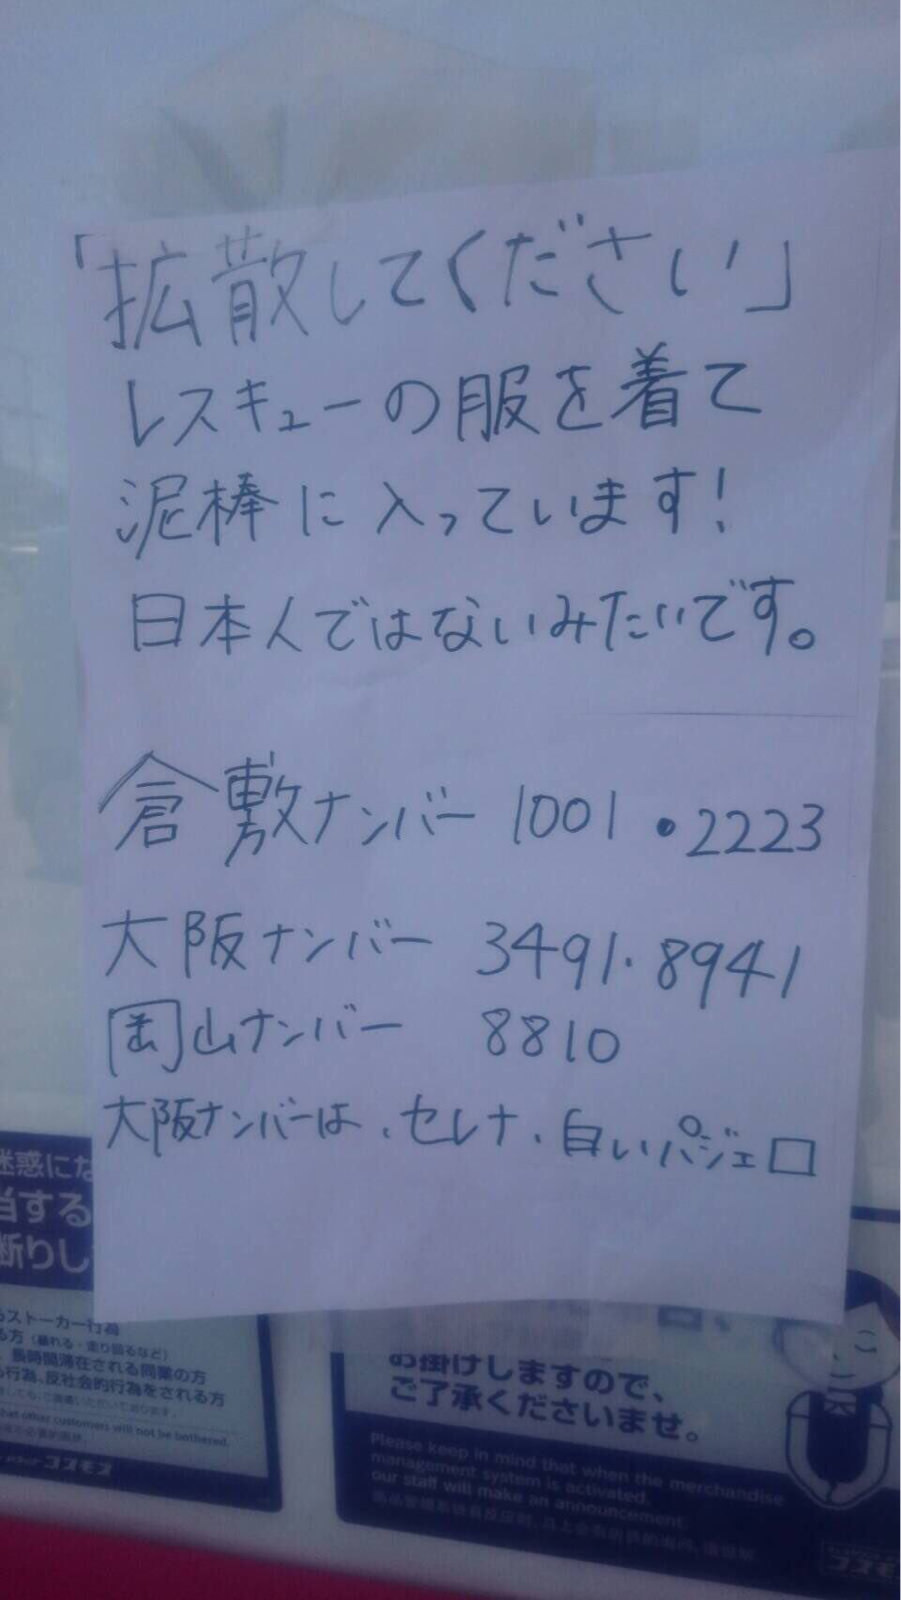 「拡散してください」
レスキューの服を着て
泥棒に入っています!
日本人ではないみたいです。
倉敷ナンバー 1001・2223
大阪ナンバー 3491・8941
岡山ナンバー 8810
大阪ナンバーは、セレナ、白いパジェロ
迷惑にな
当する
断りし
ストーカー行為
る方(暴れる・走り回るなど)
長時間滞在される同業の方
行為、反社会的行為をされる方
hat other customers will not be bothered.
コスモス
お掛けしますので、
ご了承くださいませ。
Please keep in mind that when the merchandise
management system is activated,
our staff will make an announcement.
コスモ